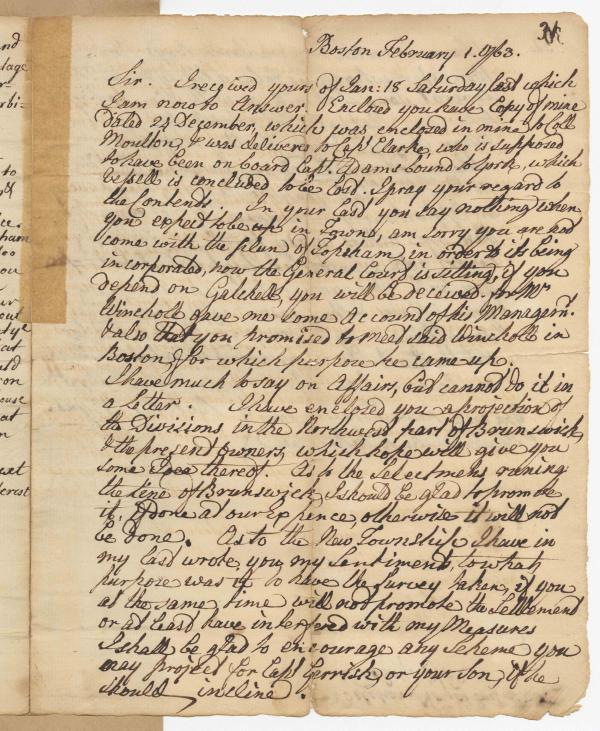 Boston February 1. 1763.
Sir. I received yours of Jan: 18 Saturday last which
I am now to Answer. Enclosed you have Copy of mine
dated 24 December, which was enclosed in mine to Coll
Moulton, & was delivered to Capt Clarke, who is supposed
to have been on board Capt. Adams bound to York, which
Vessell is concluded to be lost. I pray your regard to
the Contents. In your last you say nothing when
you expect to be up in Town, am sorry you are not
come with the plan of Topsham in order to its being
incorporated, now the General Court is sitting, if you
depend on Gatchell, you will be deceived. for Mr
Wincholl gave me some Account of his Managemt.
& also that you promised to meet said Wincholl in
Boston, for which purpose he came up.
I have much to say on Affairs, but cannot do it in
a Letter. I have enclosed you a projection of
the Divisions in the Northwest part of Brunswick,
& the present owners, which hope will give you
some Idea thereof. As to the Selectmens runing
the line of Brunswick, I should be glad to promote
it, if done at our expence, otherwise it will not
be done. As to the New Township I have in
my last wrote you my Sentiment, to what
purpose was it to have the survey taken, if you
at the same time will not promote the Settlement
or at least have interfered with my Measures
I shall be glad to encourage any scheme you
may project for Capt Gerrish, or your Son, if he
should incline.
and
to